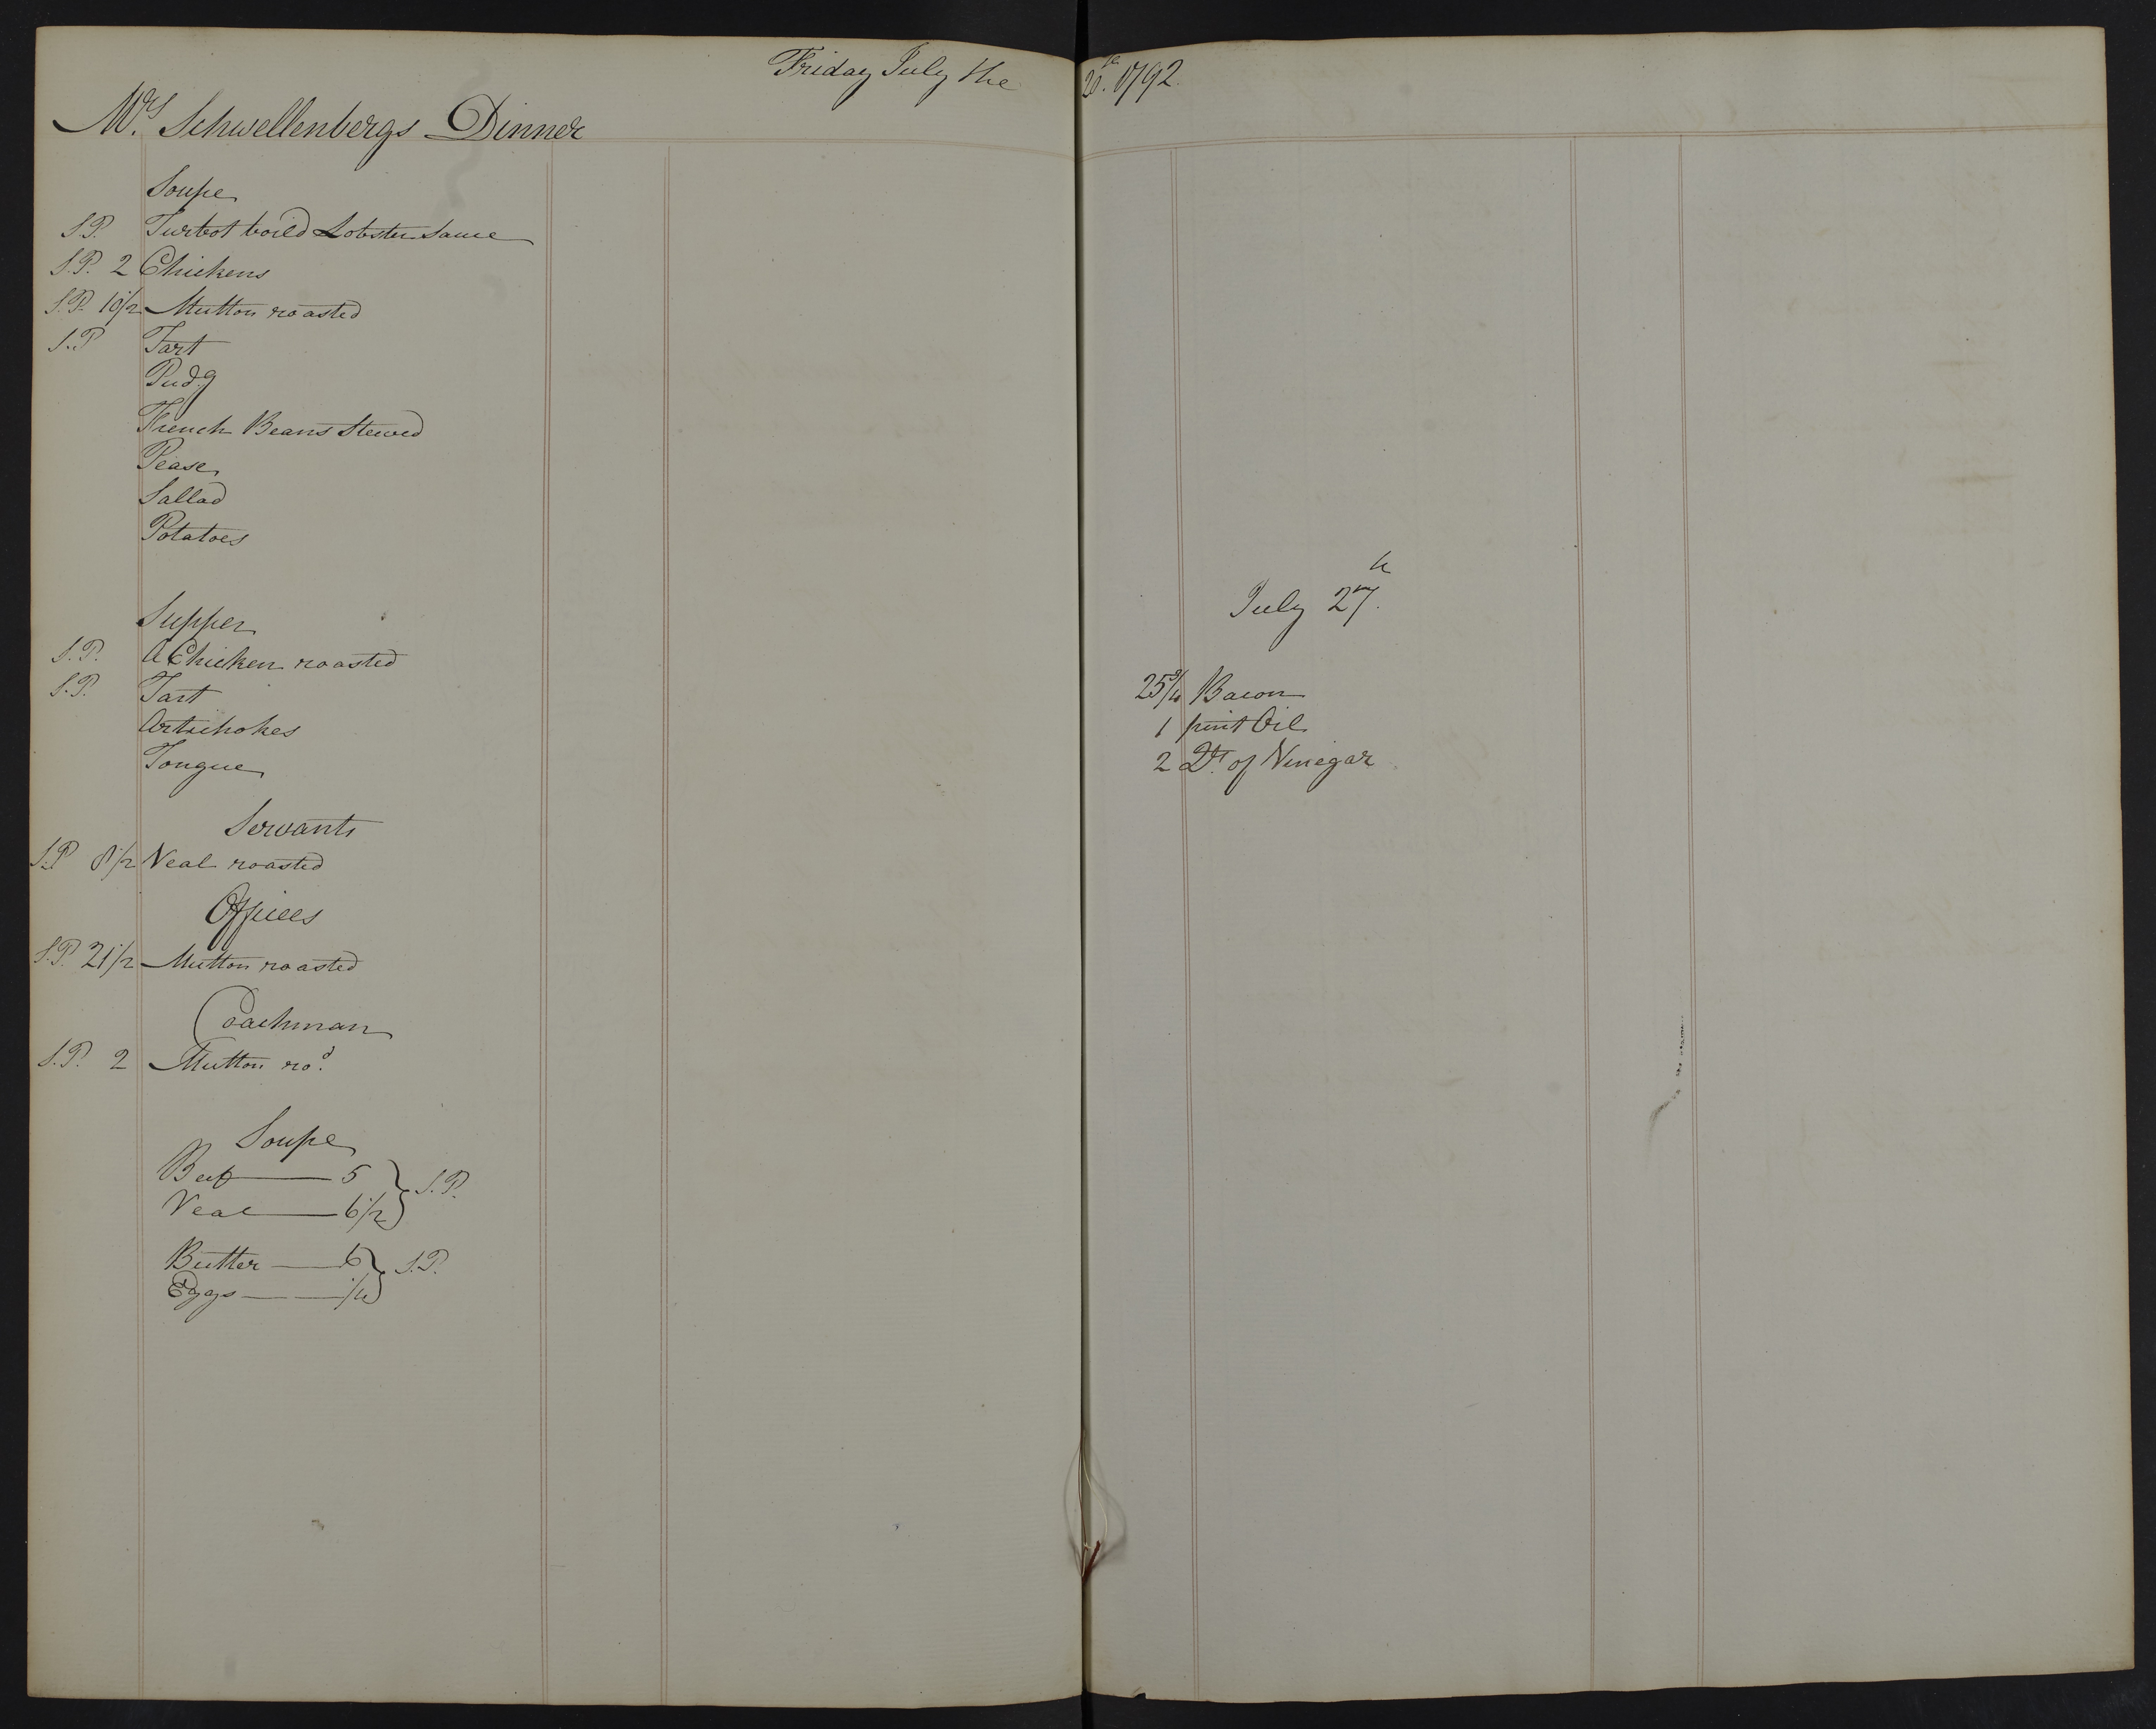 Friday July the 20th. 1792.
Mrs. Schwellenbergs Dinner
Soupe
S.P. Turbot boild Lobster Sauce
S.P. 2 Chickens
S.P. 10 1/2 Mutton roasted
S.P Tart
Pudg
French Beans Stewed
Pease
Sallad
Potatoes
Supper
S.P. A Chicken roasted
S.P. Tart
Artichokes
Tongue
Servants
S.P 8 1/2 Veal roasted
Offices
S.P. 21 1/2 Mutton roasted
Coachman
S.P. 2 Mutton rod.
Soupe
Beef 5
Veal 6 1/2 } S.P.
Butter 6
Eggs 1/4 } S.P.
July 27th.
25 3/4 Bacon
1 pint Oil
2 Dt. of Vinegar